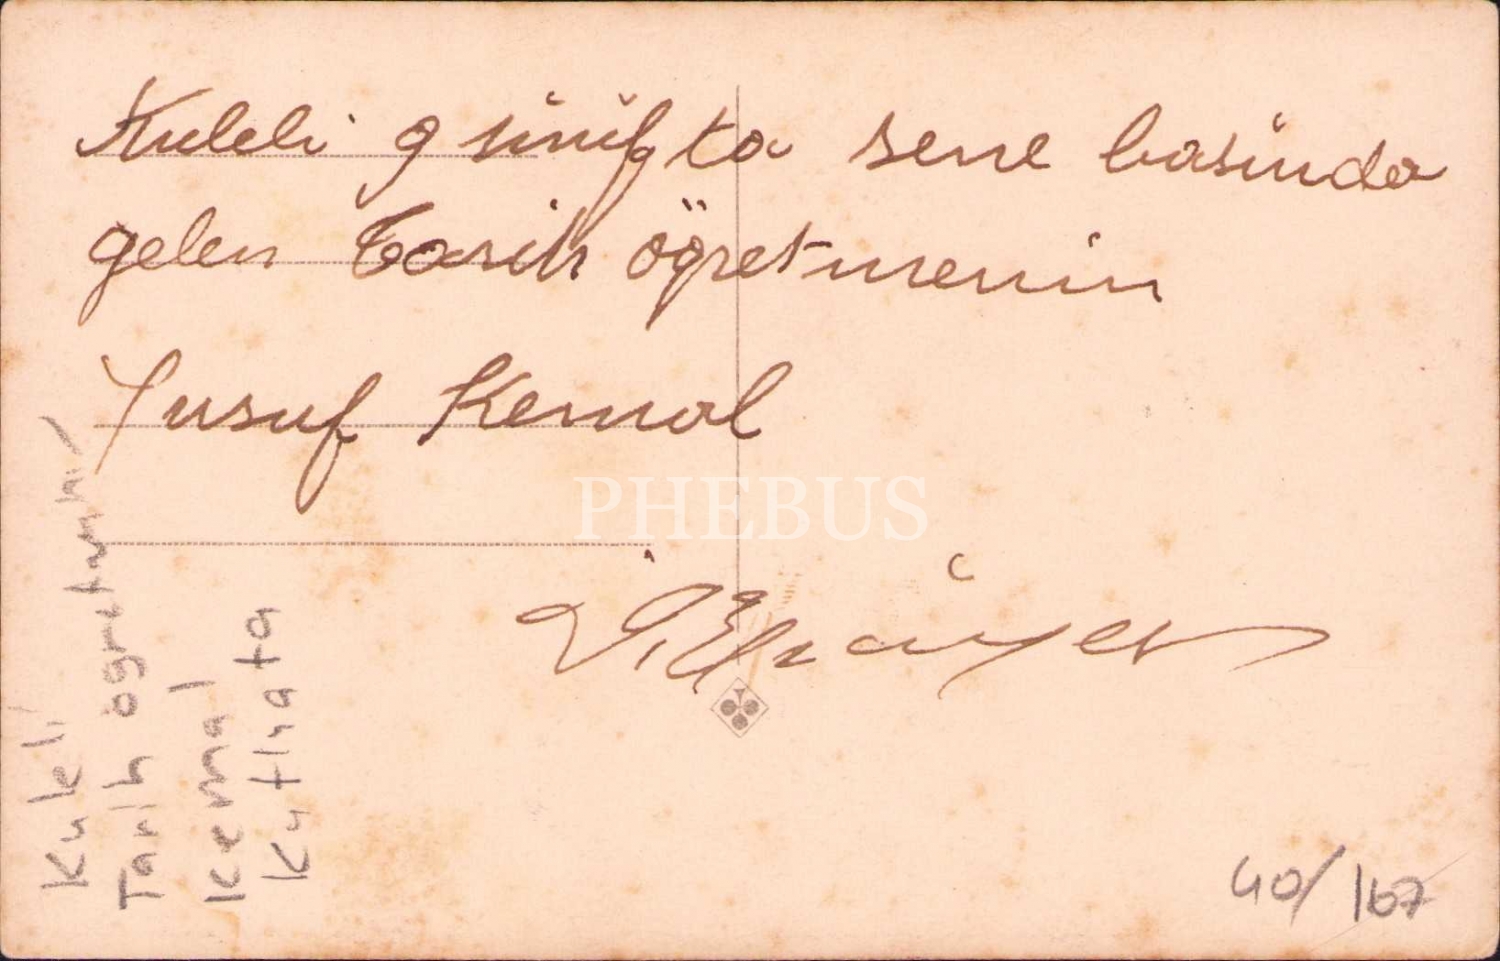 Kuleli 9 sınıfta sene basinda
gelen tarih öğretmenin
Yusuf Kemal
PHEBUS
Kuleli
Tarih ogretmeni
Kemal
Kutlata
40/167